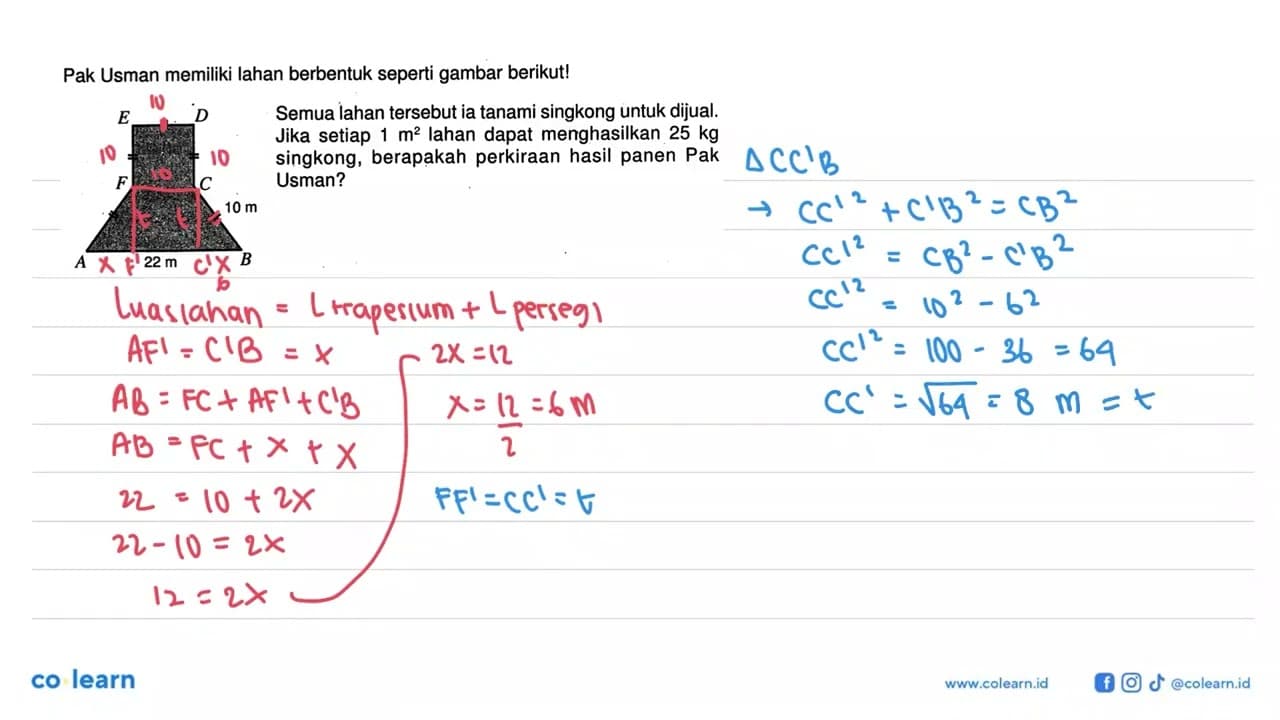 Pak Usman memiliki lahan berbentuk seperti gambar berikut!
10
E D
10 10
10
F C
10 m
t t
A x F' 22 m C' x B
6
Semua lahan tersebut ia tanami singkong untuk dijual.
Jika setiap 1 m² lahan dapat menghasilkan 25 kg
singkong, berapakah perkiraan hasil panen Pak
Usman?
Luas lahan = L trapesium + L persegi
AF' = C'B = x
AB = FC + AF' + C'B
AB = FC + x + x
22 = 10 + 2x
22 - 10 = 2x
12 = 2x
2x = 12
x = 12/2 = 6 m
FF' = CC' = t
Δ CC'B
→ CC'² + C'B² = CB²
CC'² = CB² - C'B²
CC'² = 10² - 6²
CC'² = 100 - 36 = 64
CC' = √64 = 8 m = t
co learn
www.colearn.id
@colearn.id